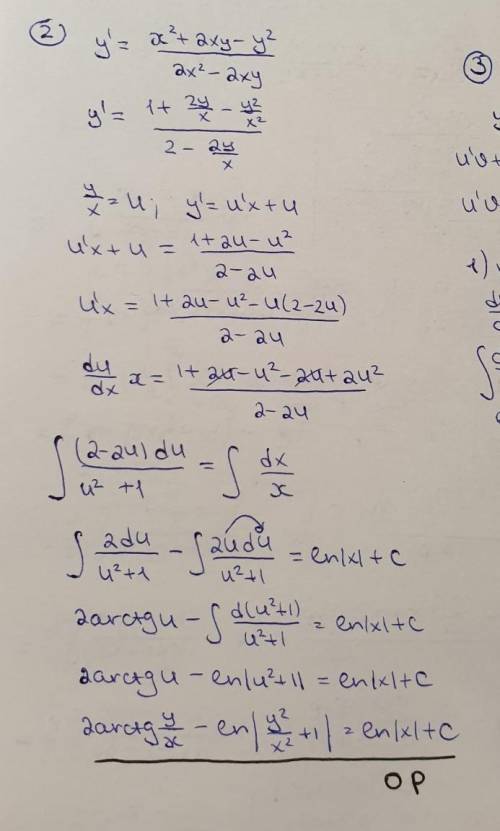 ② y' = (x² + 2xy - y²) / (2x² - 2xy)
y' = (1 + 2y/x - y²/x²) / (2 - 2y/x)
y/x = u; y' = u'x + u
u'x + u = (1 + 2u - u²) / (2 - 2u)
u'x = (1 + 2u - u² - u(2 - 2u)) / (2 - 2u)
du/dx x = (1 + 2u - u² - 2u + 2u²) / (2 - 2u)
∫ (2 - 2u) du / (u² + 1) = ∫ dx/x
∫ 2du / (u² + 1) - ∫ 2u du / (u² + 1) = ln|x| + C
2arctg u - ∫ d(u² + 1) / (u² + 1) = ln|x| + C
2arctg u - ln|u² + 1| = ln|x| + C
2arctg y/x - ln|y²/x² + 1| = ln|x| + C
OP
③
y
u'v +
u'v
1)